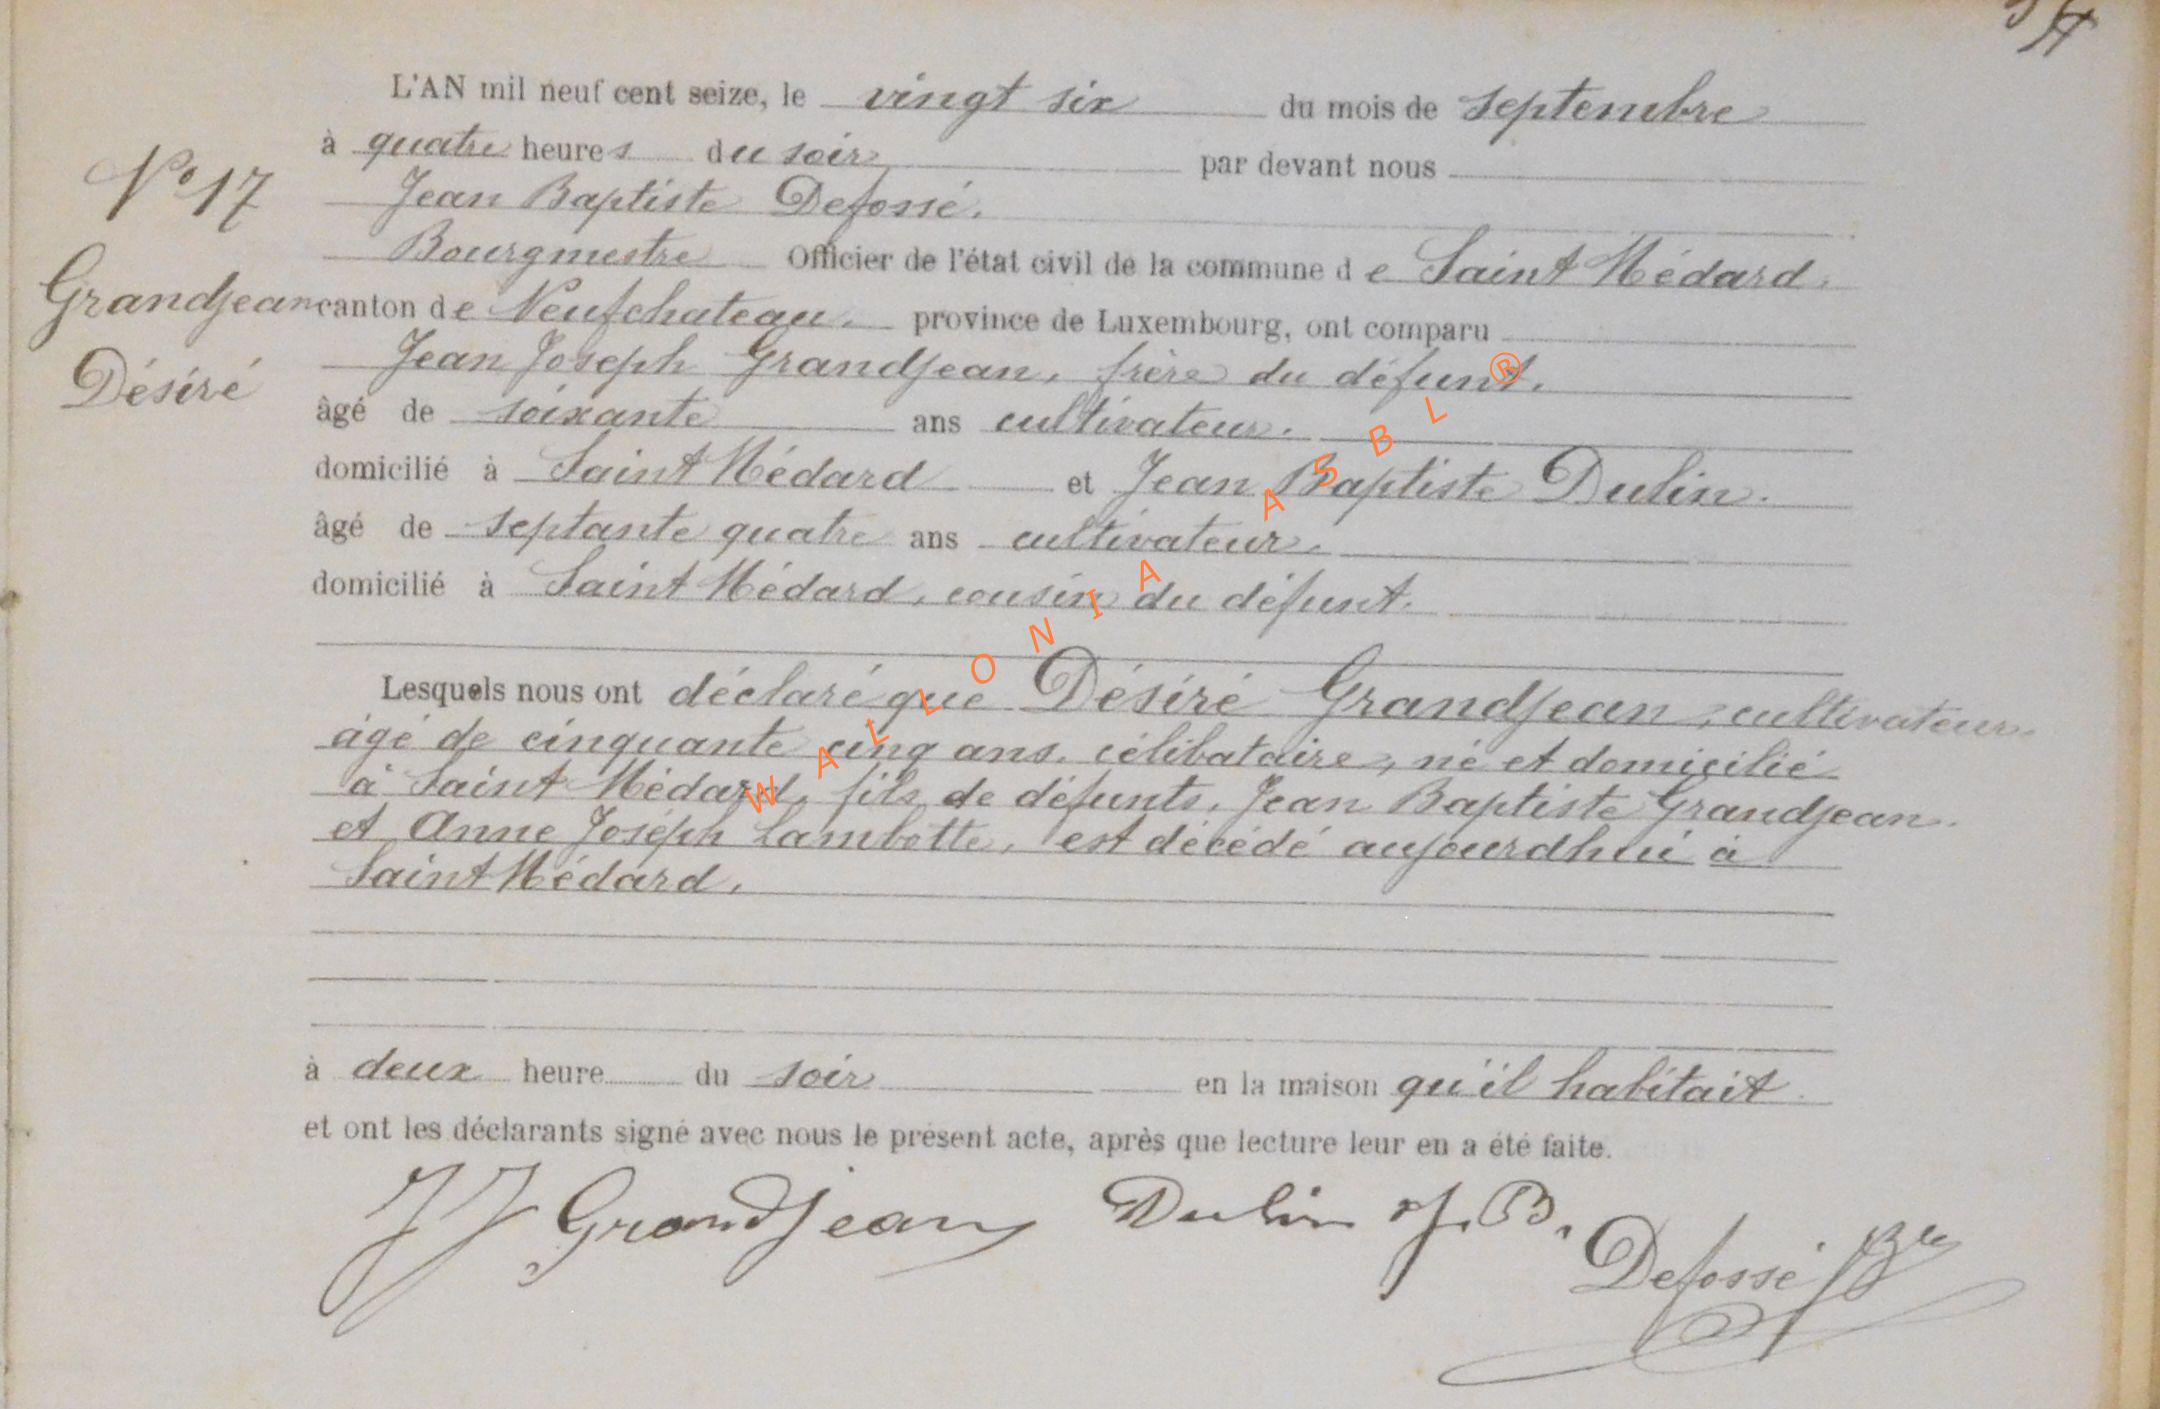 L'AN mil neuf cent seize, le vingt six du mois de septembre
à quatre heures du soir par devant nous
N° 17
Jean Baptiste Defossé.
Bourgmestre Officier de l'état civil de la commune de Saint Médard.
Grandjean
canton de Neufchateau. province de Luxembourg, ont comparu
Jean Joseph Grandjean, frère du défunt.
Désiré
âgé de soixante ans cultivateur.
domicilié à Saint Médard et Jean Baptiste Dulin.
âgé de septante quatre ans cultivateur.
domicilié à Saint Médard, cousin du défunt.
Lesquels nous ont déclaré que Désiré Grandjean, cultivateur.
âgé de cinquante cinq ans, célibataire, né et domicilié
à Saint Médard, fils de défunts, Jean Baptiste Grandjean.
et Anne Joséph Lambotte, est décédé aujourdhui à
Saint Médard.
à deux heure du soir en la maison qu'il habitait.
et ont les déclarants signé avec nous le présent acte, après que lecture leur en a été faite.
JJ Grandjean Dulin J. B.
Defossé JBte
WALLONIA ASBL ®